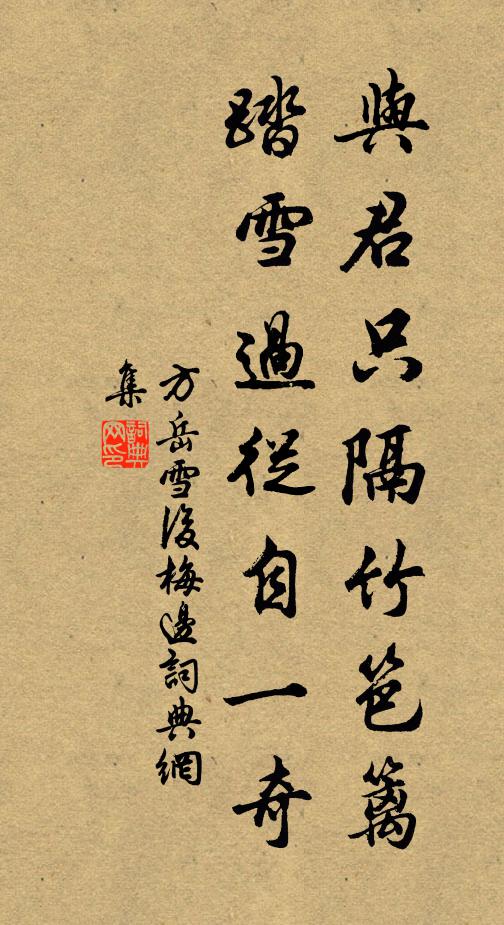 與君只隔竹笆籬
踏雪過從自一奇
方岳雪後梅邊詞典網
集
詞典
网印